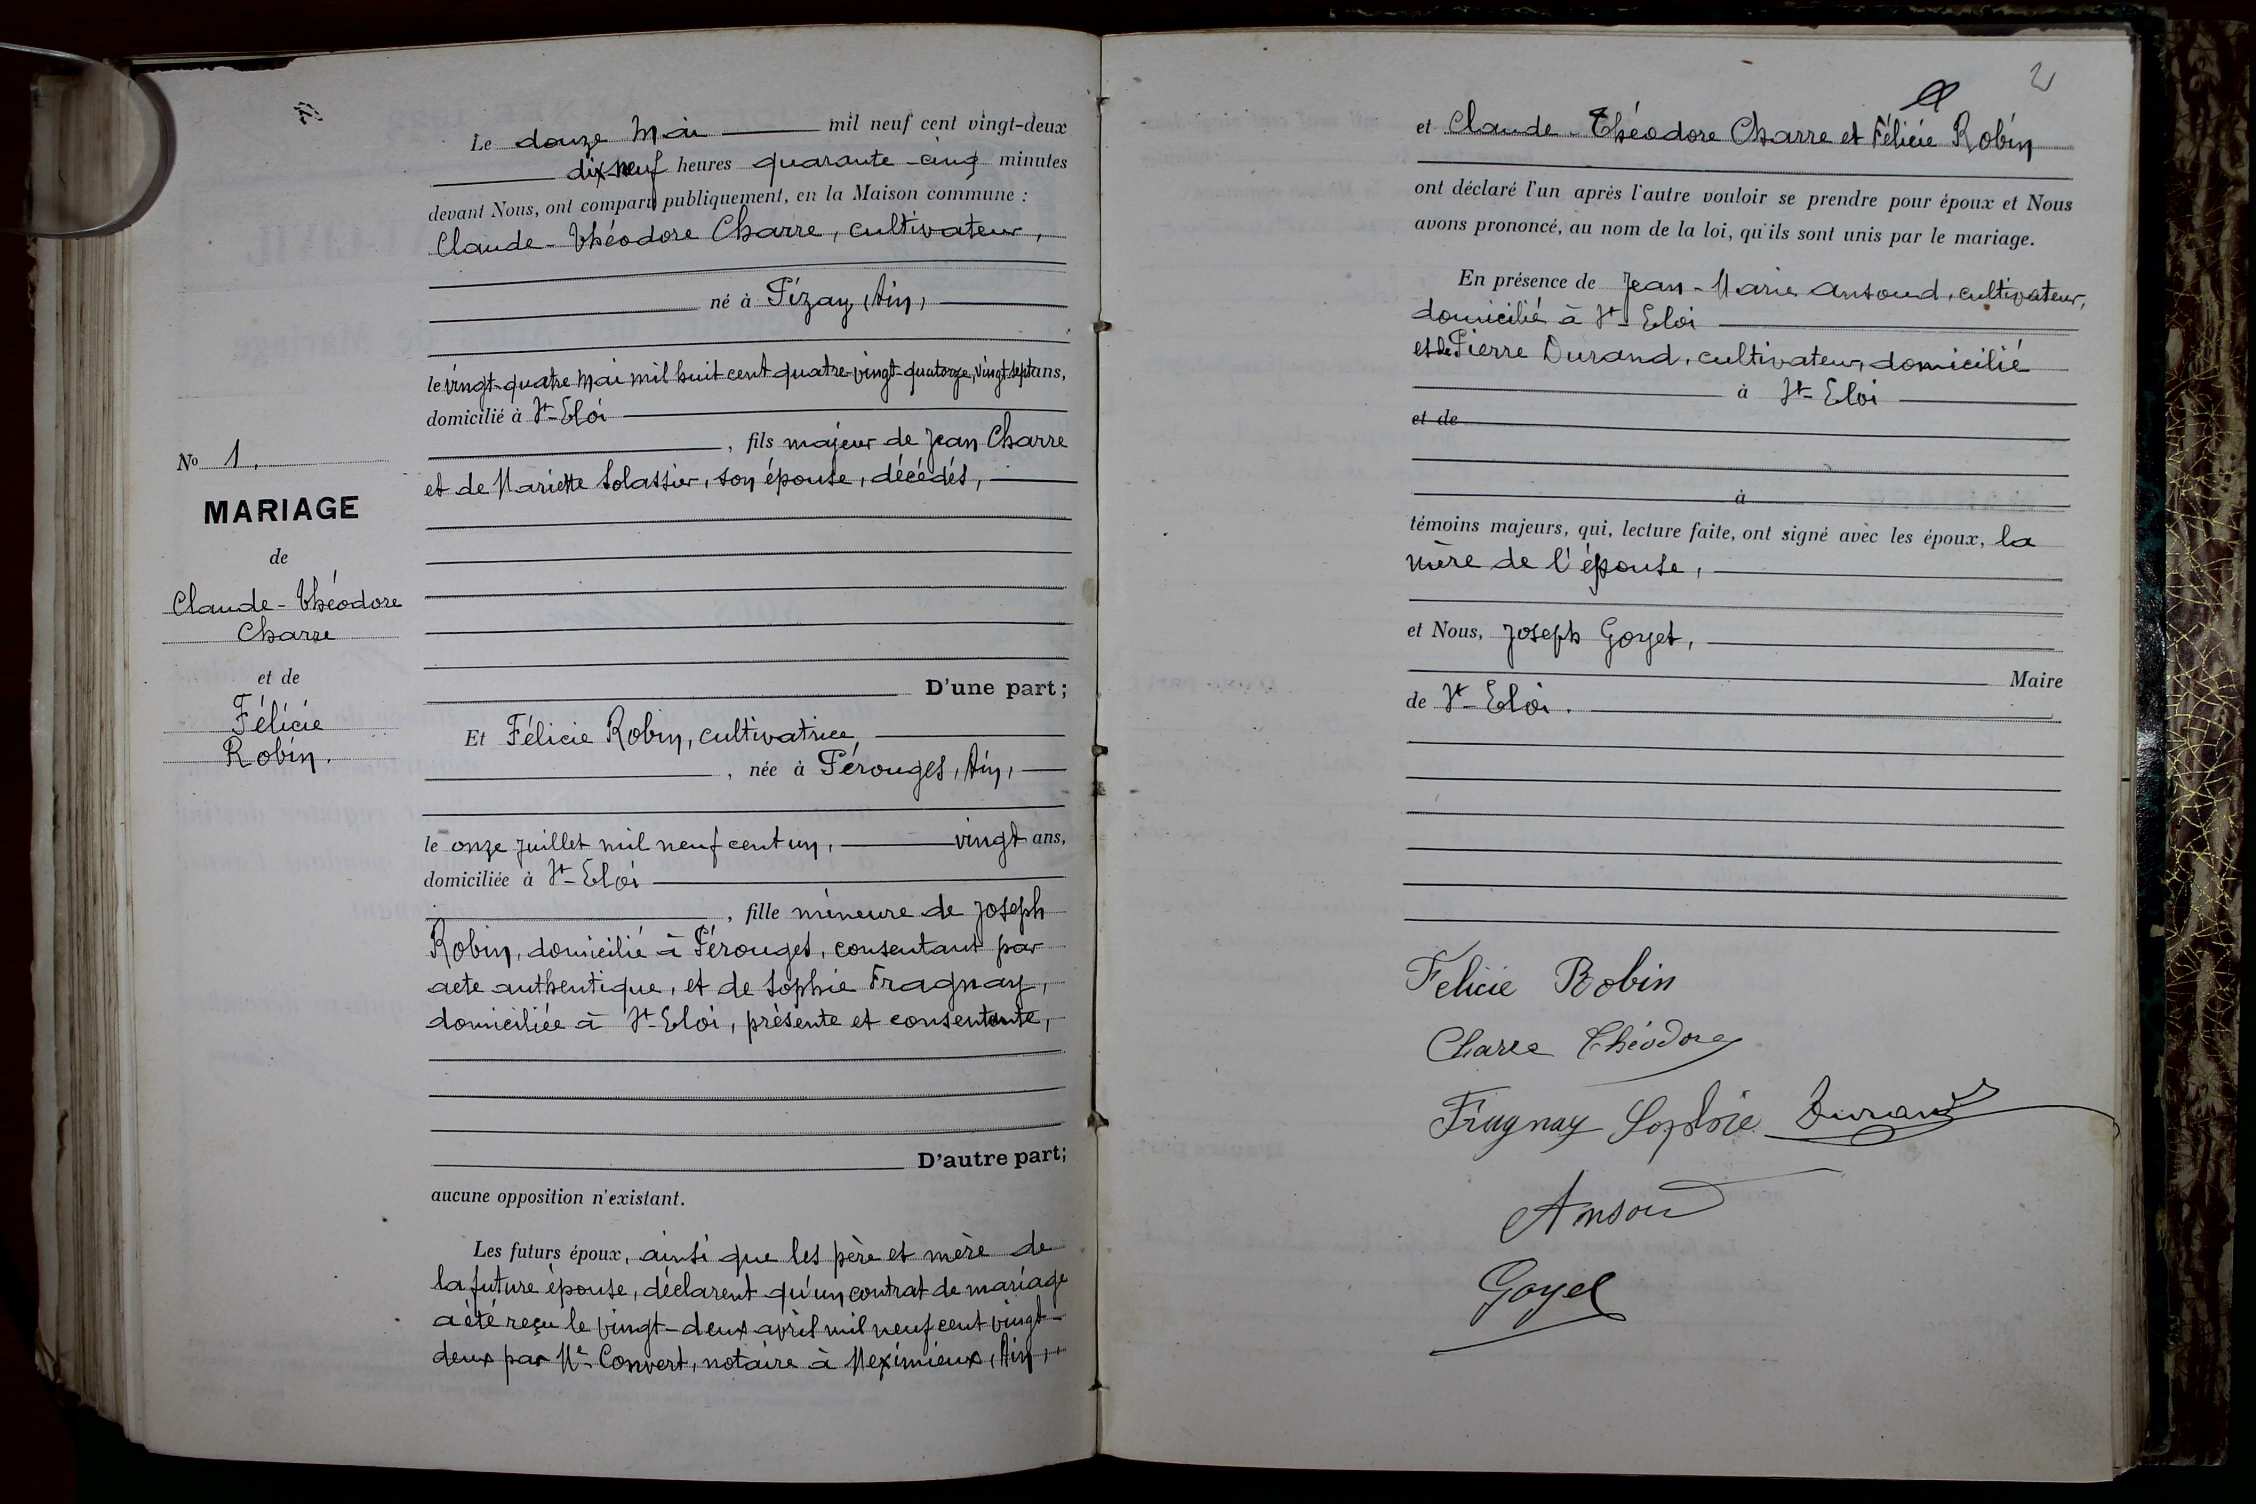 Le douze Mai mil neuf cent vingt-deux
dix-neuf heures quarante-cinq minutes
devant Nous, ont comparu publiquement, en la Maison commune :
Claude-Théodore Charre, cultivateur,
né à Pizay, Ain,
le vingt-quatre Mai mil huit cent quatre-vingt-quatorze, vingt-sept ans,
domicilié à St-Eloi
, fils majeur de Jean Charre
et de Mariette Solassier, son épouse, décédés,
D'une part ;
Et Félicie Robin, cultivatrice
, née à Pérouges, Ain,
le onze Juillet mil neuf cent un, vingt ans,
domiciliée à St-Eloi
, fille mineure de Joseph
Robin, domicilié à Pérouges, consentant par
acte authentique, et de Sophie Fragnay,
domiciliée à St-Eloi, présente et consentante,
D'autre part ;
aucune opposition n'existant.
Les futurs époux, ainsi que les père et mère de
la future épouse, déclarent qu'un contrat de mariage
a été reçu le vingt-deux avril mil neuf cent vingt-
deux par Me Convert, notaire à Meximieux, Ain,
No 1.
MARIAGE
de
Claude-Théodore
Charre
et de
Félicie
Robin.
2
et Claude-Théodore Charre et Félicie Robin
ont déclaré l'un après l'autre vouloir se prendre pour époux et Nous
avons prononcé, au nom de la loi, qu'ils sont unis par le mariage.
En présence de Jean-Marie Ansoud, cultivateur,
domicilié à St-Eloi
et de Pierre Durand, cultivateur, domicilié
à St-Eloi
et de
à
témoins majeurs, qui, lecture faite, ont signé avec les époux, la
mère de l'épouse,
et Nous, Joseph Goyet,
Maire
de St-Eloi.
Felicie Robin
Charre Théodore
Fragnay Sophie Durand
Ansoud
Goyet